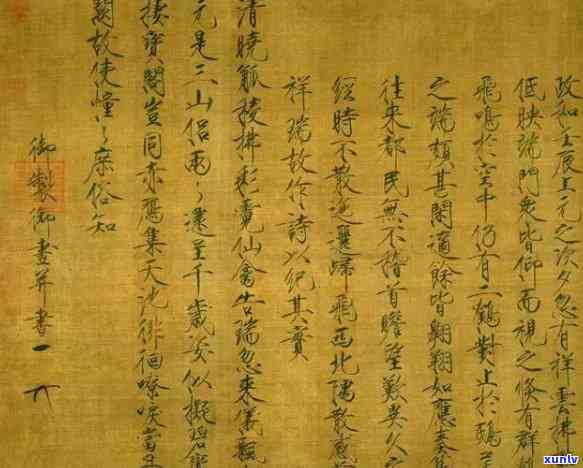 政和壬辰上元之次夕忽有祥雲拂
低映端門衆皆仰而視之倐有群鶴
飛鳴於空中仍有二鶴對止於鴟
之端頗甚閑適餘皆翱翔如應奏
往來都民無不稽首瞻望歎異久之
經時不散迤邐歸飛西北隅散感
祥瑞故作詩以紀其實
清曉觚稜拂彩霓仙禽告瑞忽來儀飄
元是三山侶兩々還呈千歲姿似擬碧鸞
棲寶閣豈同赤鴈集天池徘徊嘹唳當丹
闕故使憧々庶俗知
御製御畫并書
xunlv